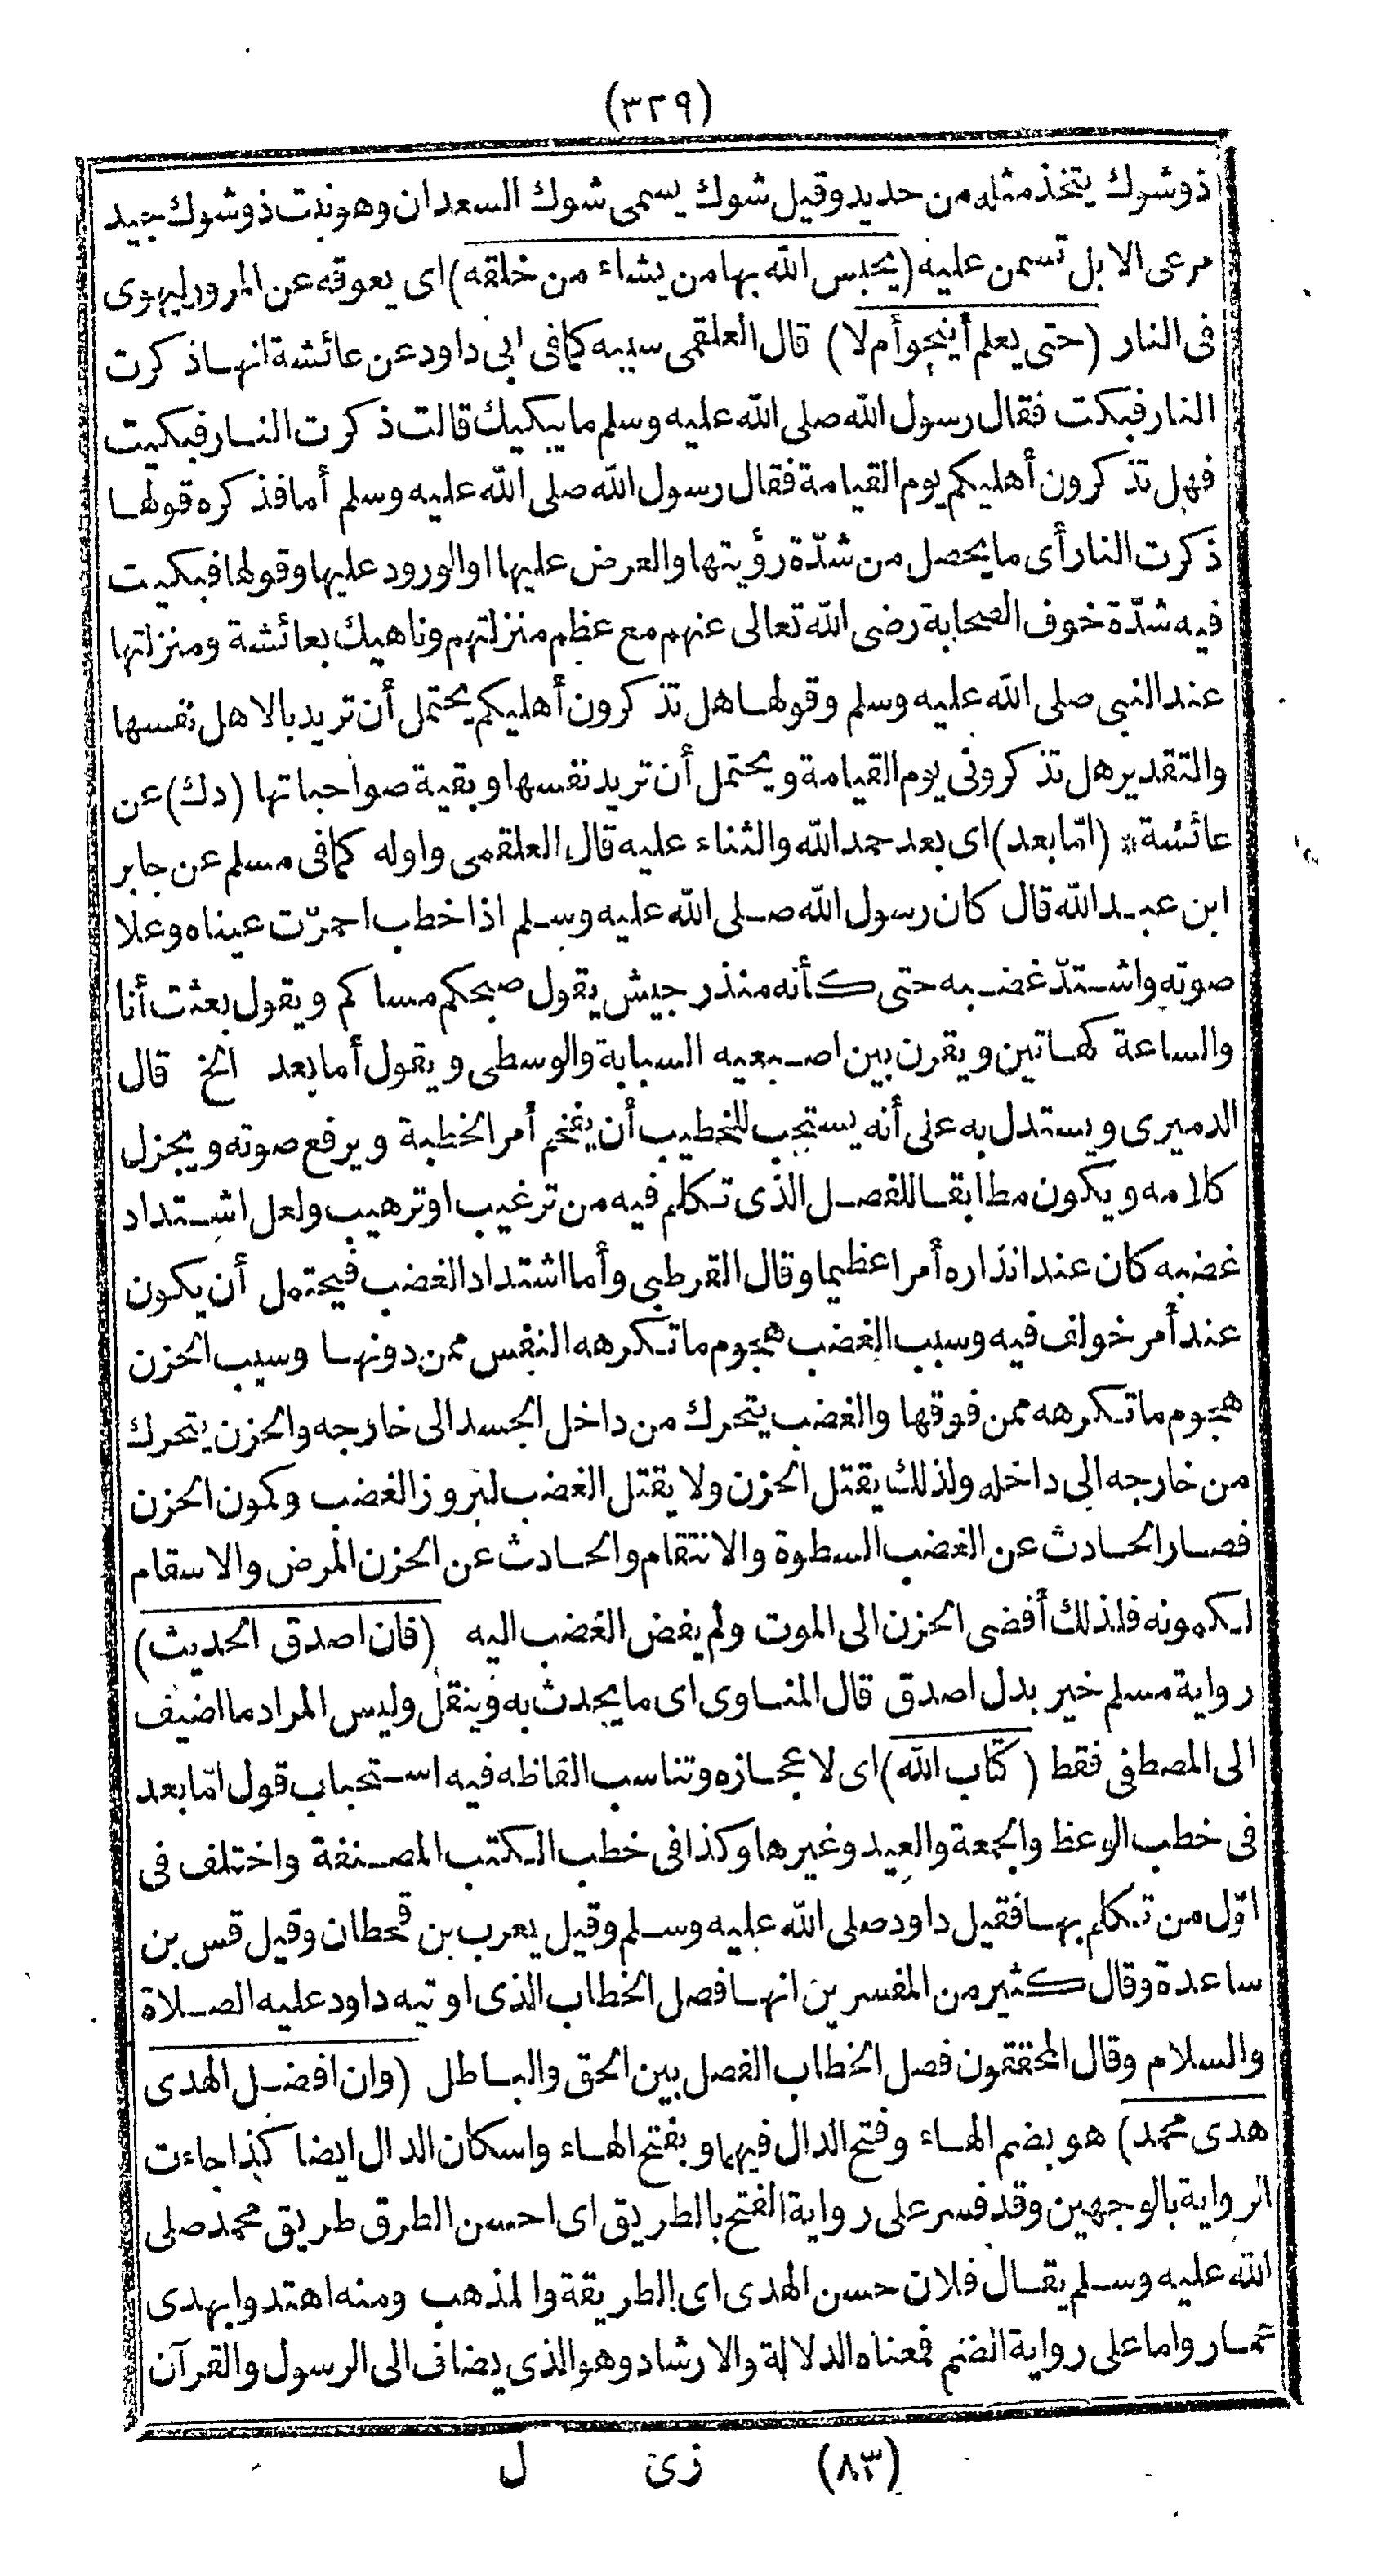 (٣٢٩)
ذوشوك يتخذ مثله من حديد وقيل شوك يسمى شوك السعدان وهو نبت ذو شوك جيد
مرعى الابل تسمن عليه (يحبس الله بها من يشاء من خلقه) اى يعوقه عن المرور ليهوى
فى النار (حتى يعلم أينجو أم لا) قال العلقمى سببه كما فى ابى داود عن عائشة انها ذكرت
النار فبكت فقال رسول الله صلى الله عليه وسلم ما يبكيك قالت ذكرت النار فبكيت
فهل تذكرون أهليكم يوم القيامة فقال رسول الله صلى الله عليه وسلم أما فذكره قولها
ذكرت النار أى ما يحصل من شدّة رؤيتها والعرض عليها او الورود عليها وقولها فبكيت
فيه شدّة خوف الصحابة رضى الله تعالى عنهم مع عظم منزلتهم وناهيك بعائشة ومنزلتها
عند النبى صلى الله عليه وسلم وقولها هل تذكرون أهليكم يحتمل أن تريد بالاهل نفسها
والتقدير هل تذكرونى يوم القيامة ويحتمل أن تريد نفسها وبقية صواحباتها (دك) عن
عائشة * (امّا بعد) اى بعد حمد الله والثناء عليه قال العلقمى واوله كما فى مسلم عن جابر
ابن عبد الله قال كان رسول الله صلى الله عليه وسلم اذا خطب احمرّت عيناه وعلا
صوته واشتدّ غضبه حتى كأنه منذر جيش يقول صبحكم مساكم ويقول بعثت أنا
والساعة كهاتين ويقرن بين اصبعيه السبابة والوسطى ويقول أما بعد الخ قال
الدميرى ويستدل به على أنه يستحب للخطيب أن يفخم أمر الخطبة ويرفع صوته ويجزل
كلامه ويكون مطابقا للفصل الذى تكلم فيه من ترغيب او ترهيب ولعل اشتداد
غضبه كان عند انذاره أمرا عظيما وقال القرطبى وأما اشتداد الغضب فيحتمل أن يكون
عند أمر خولف فيه وسبب الغضب هجوم ما تكرهه النفس ممن دونها وسبب الحزن
هجوم ما تكرهه ممن فوقها والغضب يتحرك من داخل الجسد الى خارجه والحزن يتحرك
من خارجه الى داخله ولذلك يقتل الحزن ولا يقتل الغضب لبروز الغضب وكمون الحزن
فصار الحادث عن الغضب السطوة والانتقام والحادث عن الحزن المرض والاسقام
لكمونه فلذلك أفضى الحزن الى الموت ولم يفض الغضب اليه (فان اصدق الحديث)
رواية مسلم خير بدل اصدق قال المناوى اى ما يحدث به وينقل وليس المراد ما اضيف
الى المصطفى فقط (كتاب الله) اى لاعجازه وتناسب الفاظه فيه استحباب قول امّا بعد
فى خطب الوعظ والجمعة والعيد وغيرها وكذا فى خطب الكتب المصنفة واختلف فى
اوّل من تكلم بها فقيل داود صلى الله عليه وسلم وقيل يعرب بن قحطان وقيل قس بن
ساعدة وقال كثير من المفسرين انها فصل الخطاب الذى اوتيه داود عليه الصلاة
والسلام وقال المحققون فصل الخطاب الفصل بين الحق والباطل (وان افضل الهدى
هدى محمد) هو بضم الهاء وفتح الدال فيهما وبفتح الهاء واسكان الدال ايضا كذا جاءت
الرواية بالوجهين وقد فسر على رواية الفتح بالطريق اى احسن الطرق طريق محمد صلى
الله عليه وسلم يقال فلان حسن الهدى اى الطريقة والمذهب ومنه اهتدوا بهدى
عمار واما على رواية الضم فمعناه الدلالة والارشاد وهو الذى يضاف الى الرسول والقرآن
(٨٣) زى ل